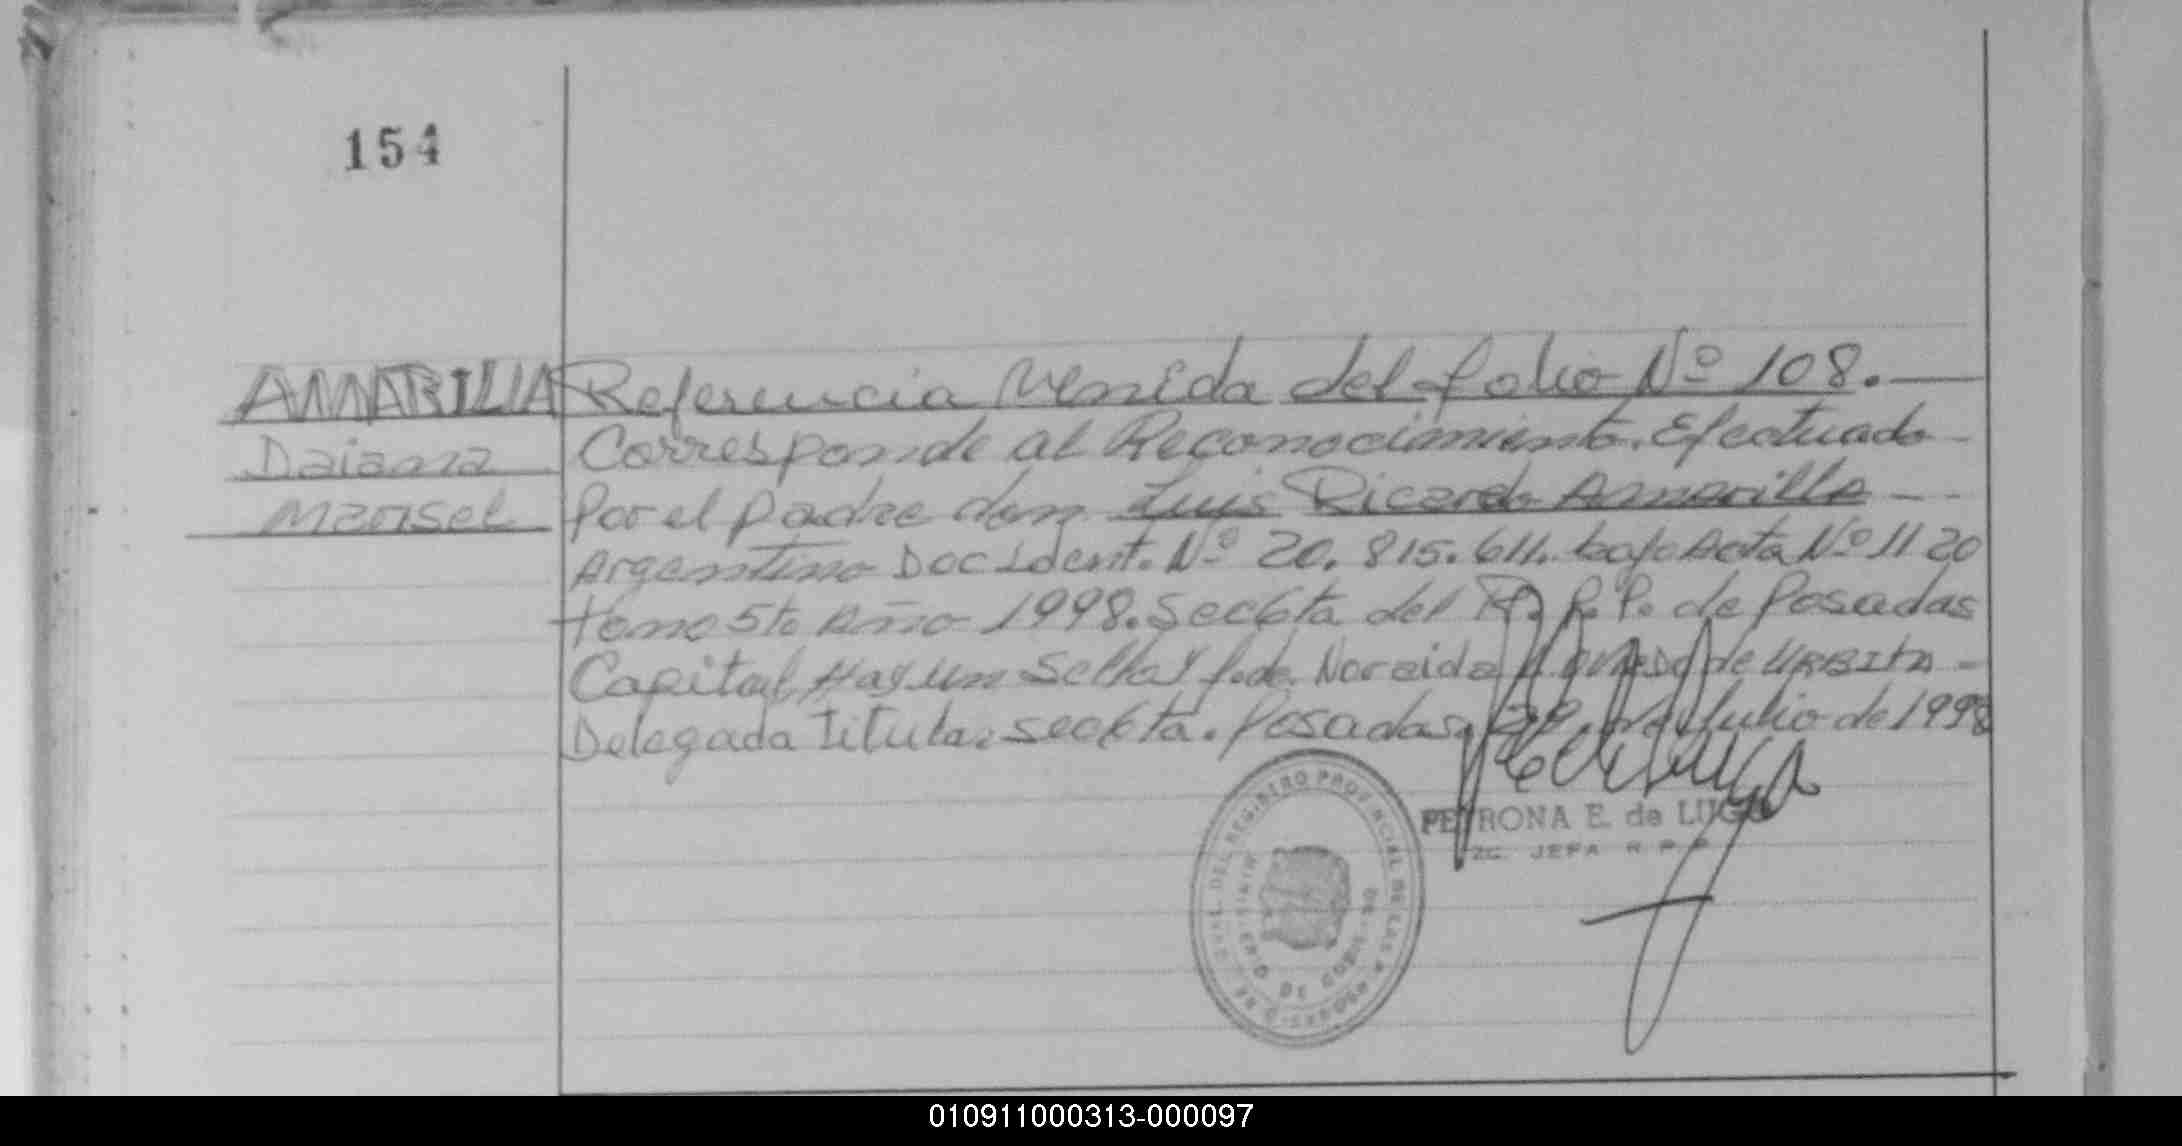 154
AMARILLA Referencia Venida del folio Nº 108.
Daiana Corresponde al Reconocimiento. Efectuado
Marisel Por el padre don Luis Ricardo Amarilla
Argentino Doc Ident. Nº 20.815.611. bajo Acta Nº 1120
tomo 5to Año 1998. Secc 6ta del R.P.P. de Posadas
Capital, Hay un Sello y f. de Noraida de URBITA
Delegada titular secc 6ta. Posadas, de Julio de 1998
PETRONA E. de LUGO
JEFA R P P
DEL REGISTRO PROVINCIAL DE LAS PERSONAS
MINISTERIO DE GOBIERNO
010911000313-000097